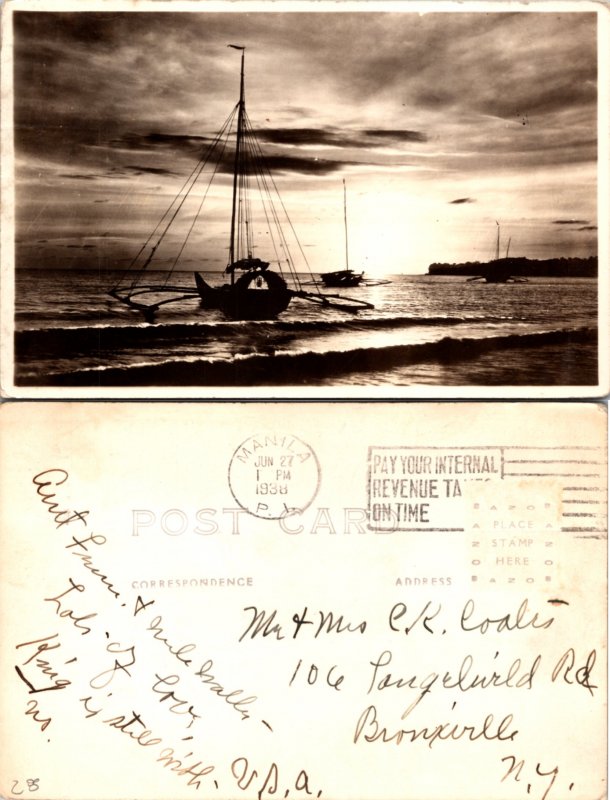 MANILA
JUN 27
1 PM
1938
P. I.
PAY YOUR INTERNAL
REVENUE TAXES
ON TIME
POST CARD
AZO
PLACE
STAMP
HERE
AZO
CORRESPONDENCE
ADDRESS
Aunt
& Uncle
Lots of Love,
King is still with
us.
Mr & Mrs C.K. Coates
106 Rd
Bronxville
N.Y.
U.S.A.
28